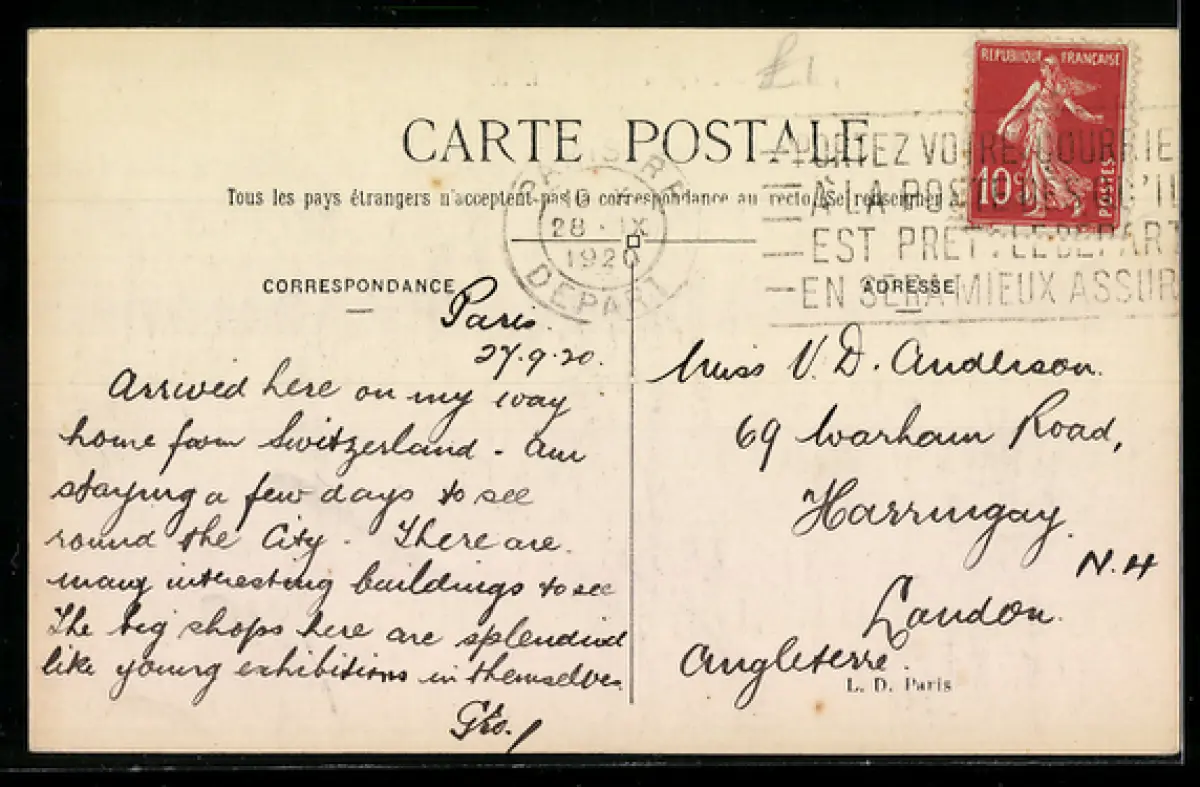 £1.
REPUBLIQUE FRANÇAISE
10c POSTES
CARTE POSTALE
Tous les pays étrangers n'acceptent pas la correspondance au recto (Se renseigner à
PARIS R.P.
28 · IX
1920
DEPART
PORTEZ VOTRE COURRIE
A LA POSTE DES QU'IL
EST PRET. LE DEPART
EN SERA MIEUX ASSUR
CORRESPONDANCE
Paris.
27.9.20.
Arrived here on my way
home from Switzerland. Am
staying a few days to see
round the City. There are
many interesting buildings to see
The big shops here are splendid
like young exhibitions in themselves
Geo.
ADRESSE
Miss V. D. Anderson.
69 Warham Road,
Harringay.
N.4
London.
Angleterre.
L. D. Paris